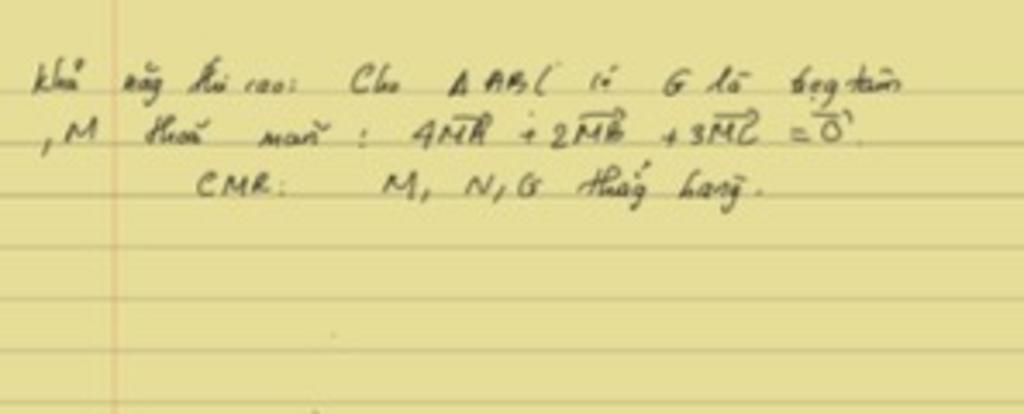 khả năg thi cao: Cho Δ ABC có G là trọg tâm
, M thoả mãn : 4MA + 2MB + 3MC = 0.
CMR: M, N, G thẳg hàng.